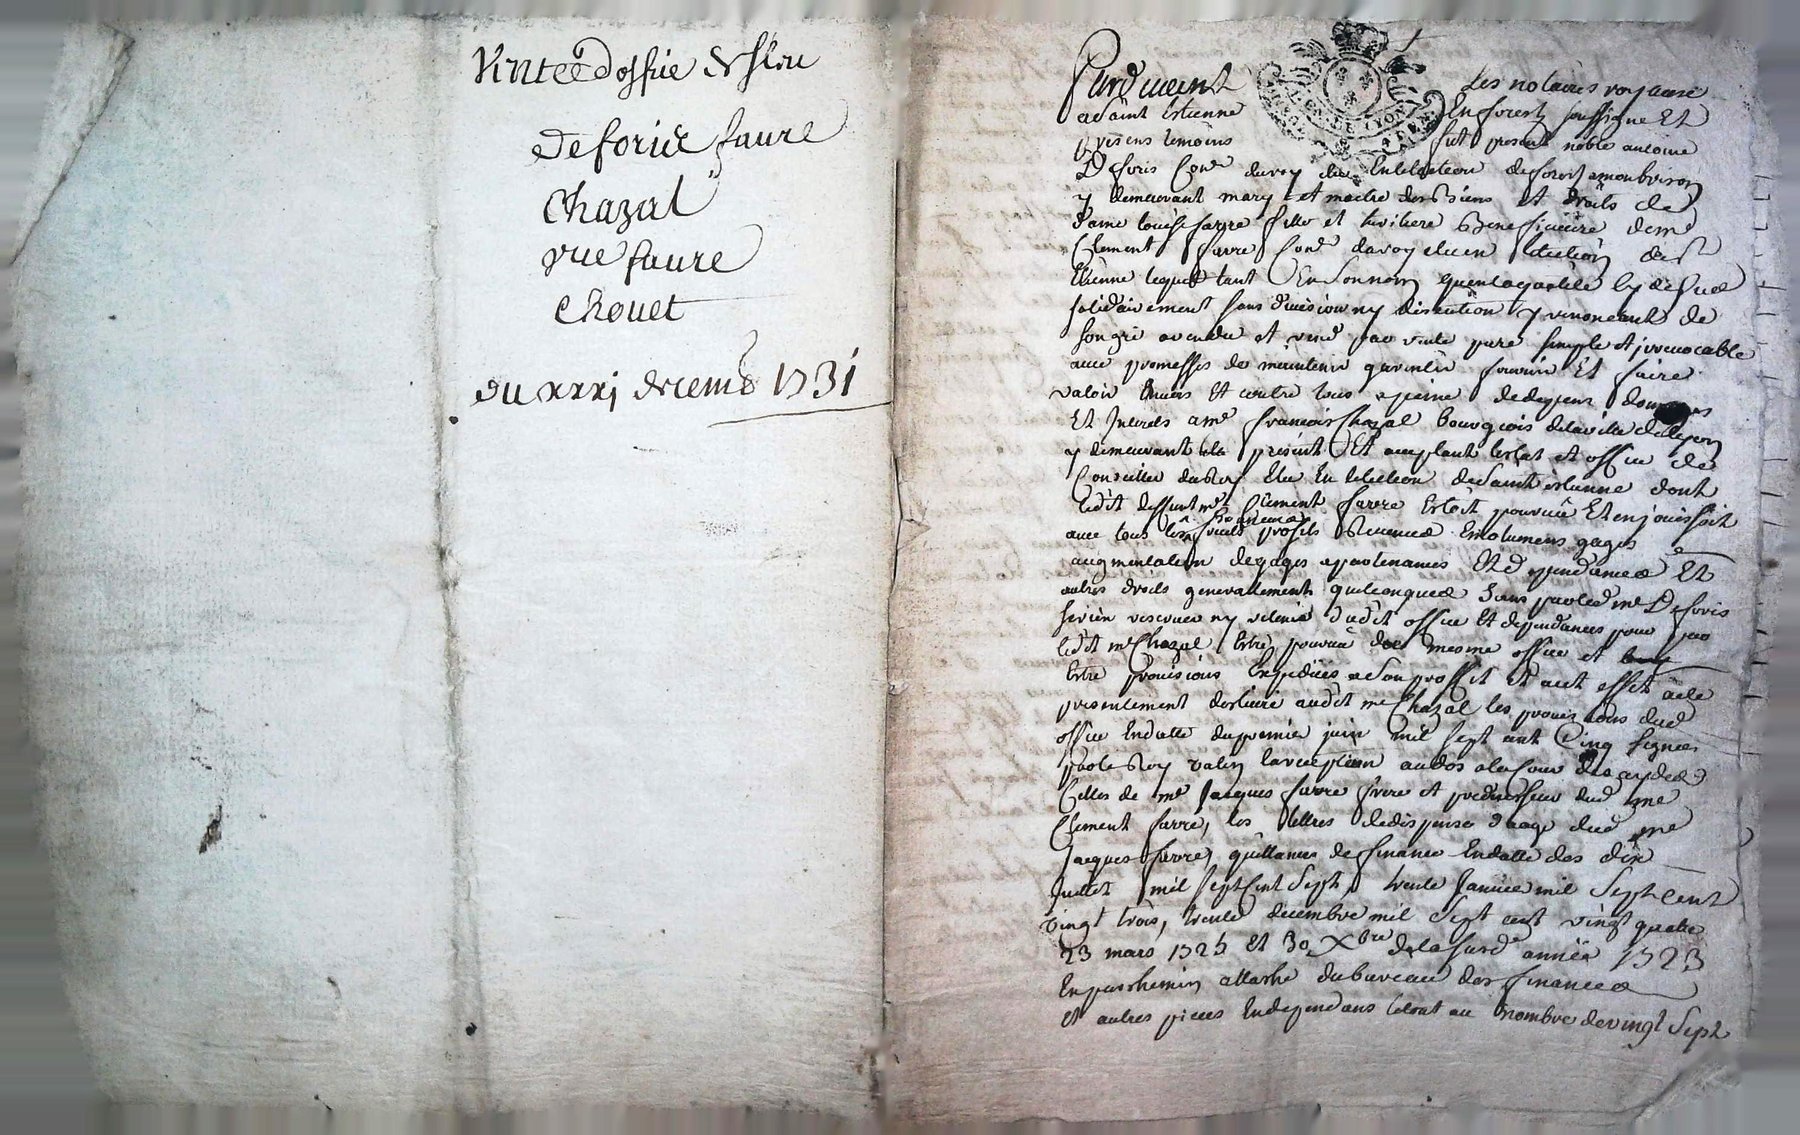 Vente d'office d'Esleu
Deforis faure
Chazal
vue faure
Chouet
du xxxj decemb 1731
Pardevant les notaires royaux
a Saint Estienne En forest soussigne Et
presens temoins fut present noble antoine
Deforis Con.er du roy elu En lelection de forest a monbrison
y demeurant mary et maitre des biens et droits de
dame Louise farre fille et heritiere Beneficiere de m.e
Clement farre Con.er du roy elu en lelection de S.t
Etienne lequel tant En son nom quen la qualité
solidairement sans division ny discution y renonceant de
son gré a vendu et vend par vente pure simple et irrevocable
avec promesses de maintenir garentir fournir Et faire
valoir Envers Et contre tous a peine de depens
Et Interets a m.e francois Chazal bourgeois de la ville de Lyon
y demeurant present Et acceptant lestat et office de
Conseiller du Roy Elu En lelection de Saint etienne dont
ledit deffunt m.e Clement farre Estoit pourvu Et en jouissoit
avec tous les honneurs fruits profits Revenus Emolumens gages
augmentation de gages apartenances Et dependances Et
autres droits generallement quelconques sans par led m.e Deforis
sien reserver ny retenir dudit office Et dependances pour par
ledit m.e Chazal Estre pourvu du mesme office et
Estre provisions Expediées a son proffit Et a cet effet a ete
presentement deslivré audit m.e Chazal les provisions dud
office En datte du premier juin mil sept cent Cinq signées
par le Roy la reception au dos a la Cour des aydes
Celles de m.e Jacques farre frere et predecesseur dud me
Clement farre, les lettres de dispense d'aage dud me
Jacques farre, quittances de finance En datte des dix
Juillet mil sept Cent Sept trente Janvier mil Sept Cent
vingt trois, trente decembre mil Sept cent vingt quatre
23 mars 1725 et 30 Xbre de la susd.e année 1723
En parchemin attaché du bureau des finances
et autres pieces En dependans le tout au nombre de vingt Sept